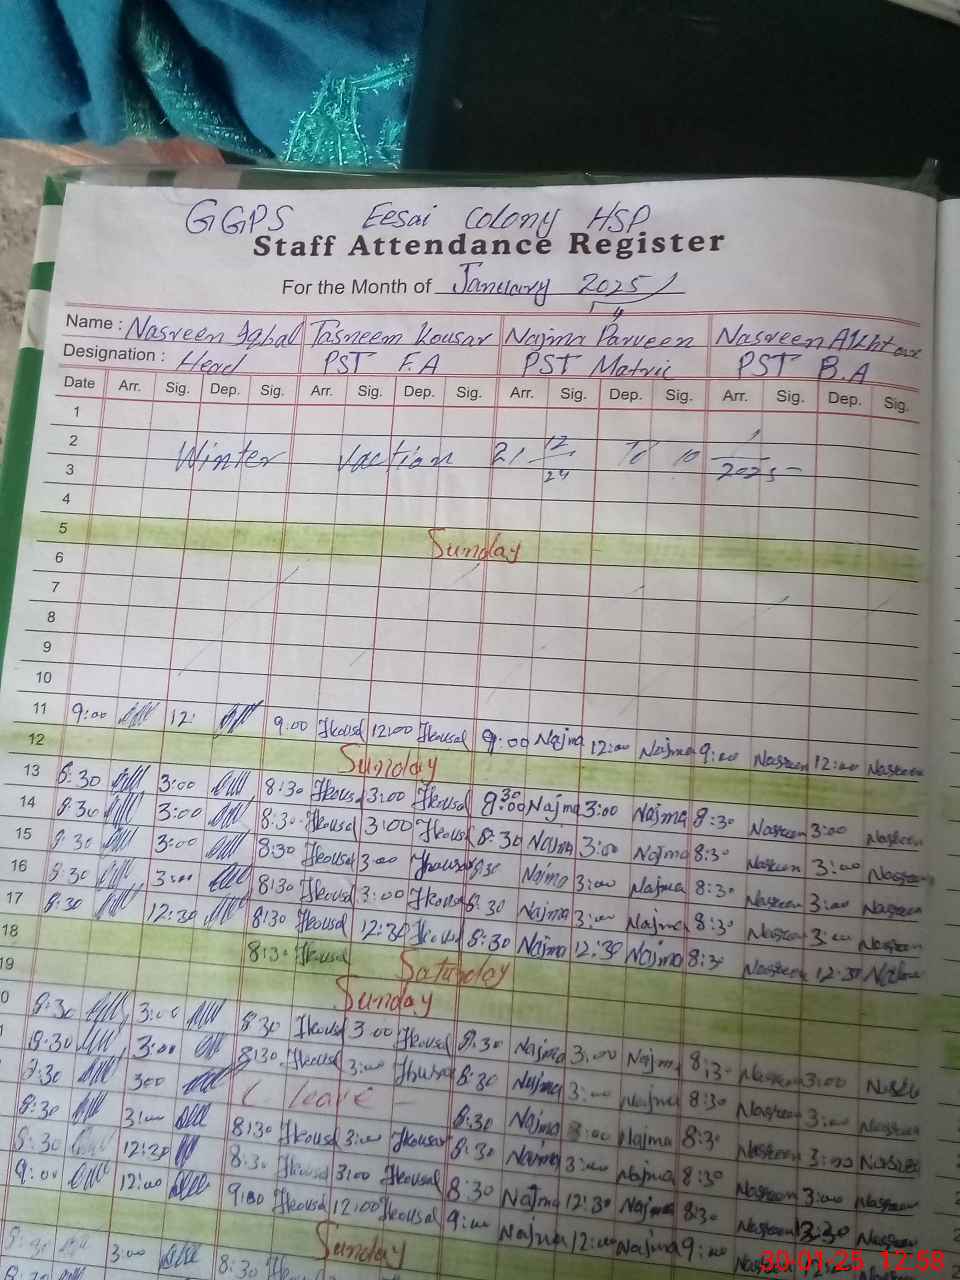 GGPS Eesai Colony HSP
Staff Attendance Register
For the Month of January 2025
Name : Nasreen Iqbal Tasneem Kousar Najma Parveen Nasreen Akhtar
Designation : Head PST F.A PST Matric PST B.A
Date Arr. Sig. Dep. Sig. Arr. Sig. Dep. Sig. Arr. Sig. Dep. Sig. Arr. Sig. Dep. Sig.
1
2 Winter Vaction 21 12/24 To 10 1/2025
3
4
5 Sunday
6
7
8
9
10
11 9:00 12: 9.00 Tkousal 12:00 Tkousal 9:00 Najma 12:00 Najma 9:00 Nasreen 12:00 Nasreen
12 Sunday
13 8:30 3:00 8:30 Tkousal 3:00 Tkousal 8:30 Najma 3:00 Najma 8:30 Nasreen 3:00 Nasreen
14 8:30 3:00 8:30 Tkousal 3:00 Tkousal 8:30 Najma 3:00 Najma 8:30 Nasreen 3:00 Nasreen
15 8:30 3:00 8:30 Tkousal 3:00 Tkousal 8:30 Najma 3:00 Najma 8:30 Nasreen 3:00 Nasreen
16 8:30 3:00 8:30 Tkousal 3:00 Tkousal 8:30 Najma 3:00 Najma 8:30 Nasreen 3:00 Nasreen
17 8:30 12:30 8:30 Tkousal 12:30 Tkousal 8:30 Najma 12:30 Najma 8:30 Nasreen 12:30
18 8:30 Tkousal Saturday
19 Sunday
0 8:30 3:00 8:30 Tkousal 3:00 Tkousal 8:30 Najma 3:00 Najma 8:30 Nasreen 3:00
8:30 3:00 8:30 Tkousal 3:00 Tkousal 8:30 Najma 3:00 Najma 8:30 Nasreen 3:00 Nasreen
8:30 3:00 Leave 8:30 Najma 3:00 Najma 8:30 Nasreen 3:00
8:30 3:00 8:30 Tkousal 3:00 Tkousal 8:30 Najma 3:00 Najma 8:30 Nasreen 3:00 Nasreen
8:30 12:30 8:30 Tkousal 3:00 Tkousal 8:30 Najma 12:30 Najma 8:30 Nasreen 12:30 Nasreen
9:00 12:00 9:00 Tkousal 12:00 Tkousal 9:00 Najma 12:00 Najma 9:00 Nasreen
Sunday
8:30 3:00 8:30 Tkousal 3:00 Tkousal
30-01-25 12:58